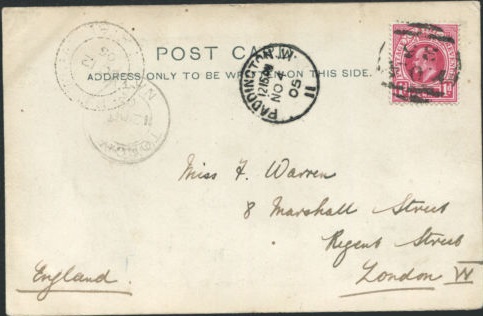 POST CA
ADDRESS ONLY TO BE WR N ON THIS SIDE.
PADDINGTON.W.
12.15AM
NO 4
05
11
1d
Miss F. Warren
8 Marshall Street
Regent Street
London W
England.